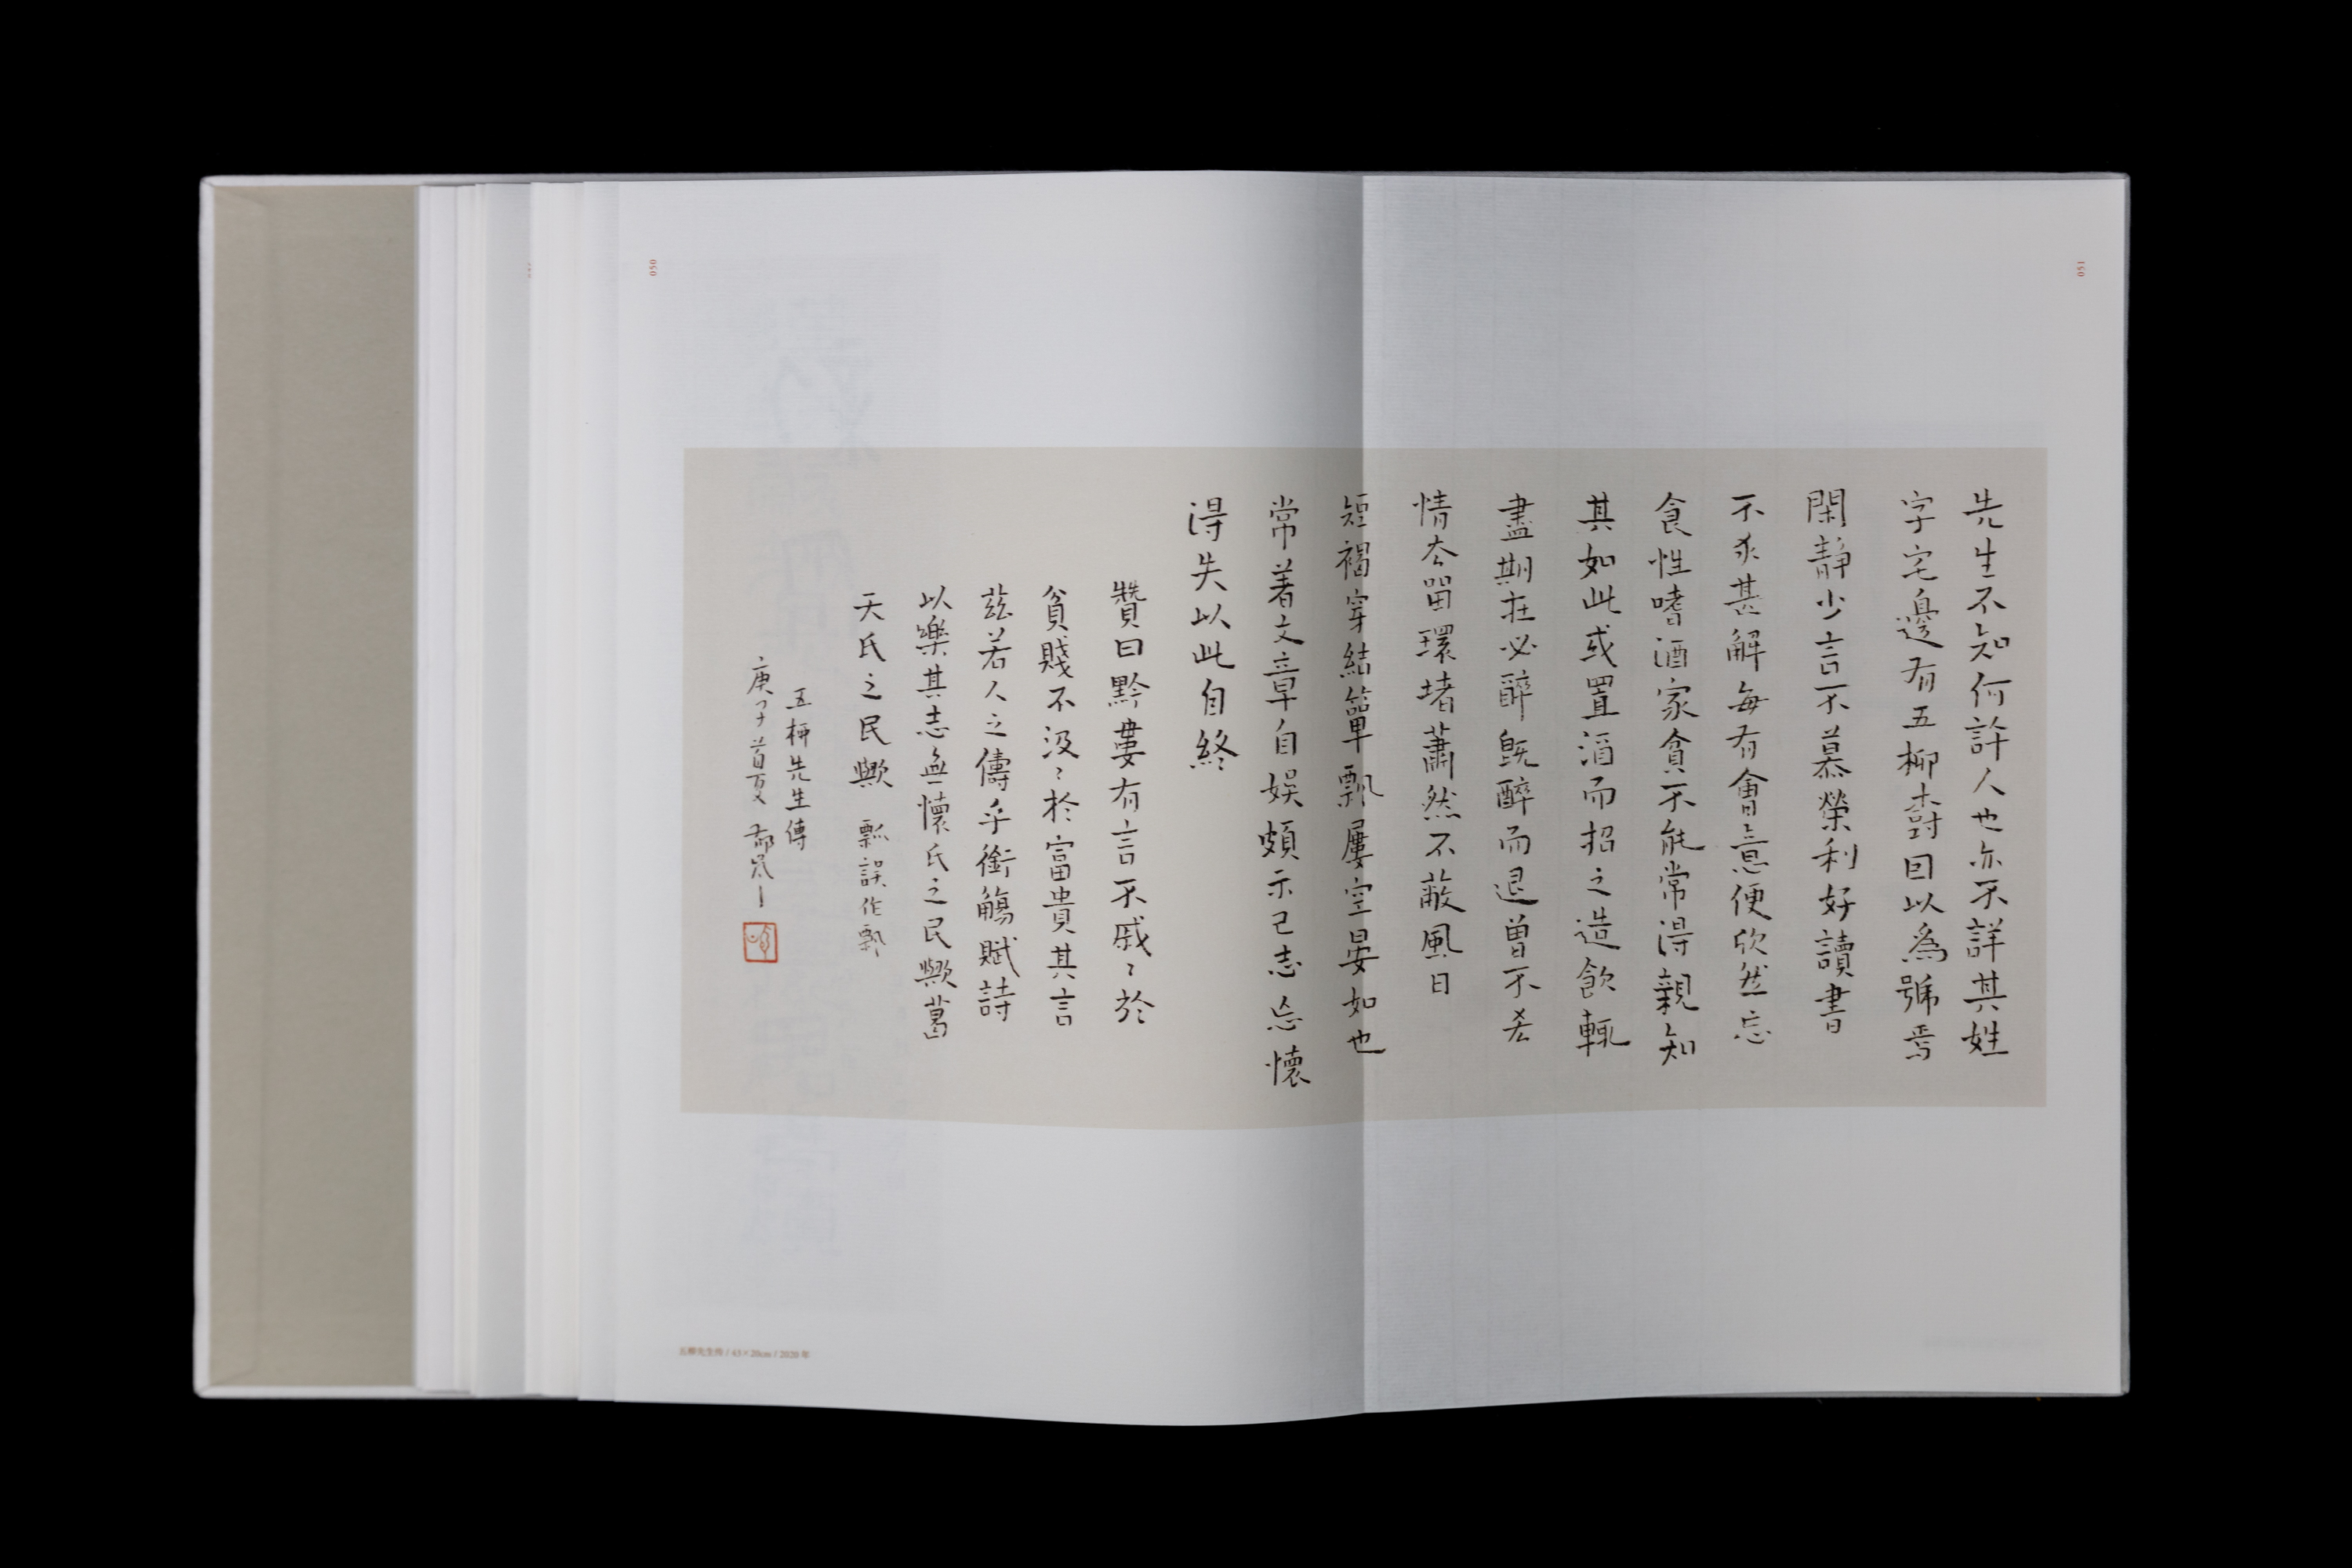 先生不知何許人也亦不詳其姓
字宅邊有五柳樹因以爲號焉
閑靜少言不慕榮利好讀書
不求甚解每有會意便欣然忘
食性嗜酒家貧不能常得親知
其如此或置酒而招之造飲輒
盡期在必醉既醉而退曾不吝
情去留環堵蕭然不蔽風日
短褐穿結簞飄屢空晏如也
常著文章自娛頗示己志忘懷
得失以此自終
贊曰黔婁有言不戚〻於
貧賤不汲〻於富貴其言
茲若人之儔乎銜觴賦詩
以樂其志無懷氏之民歟葛
天氏之民歟 瓢誤作飄
五柳先生傳
庚子首夏
050
051
五柳先生传 / 63×20cm / 2020 年